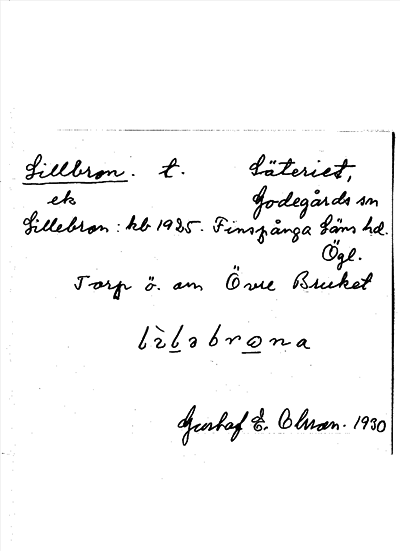 Lillbron. t. Säteriet,
ek Godegårds sn
Lillebron: kb 1925. Finspånga Läns hd.
Ögl.
Torp ö. om Övre Bruket
lìləbrona
Gustaf E. Olsson. 1930